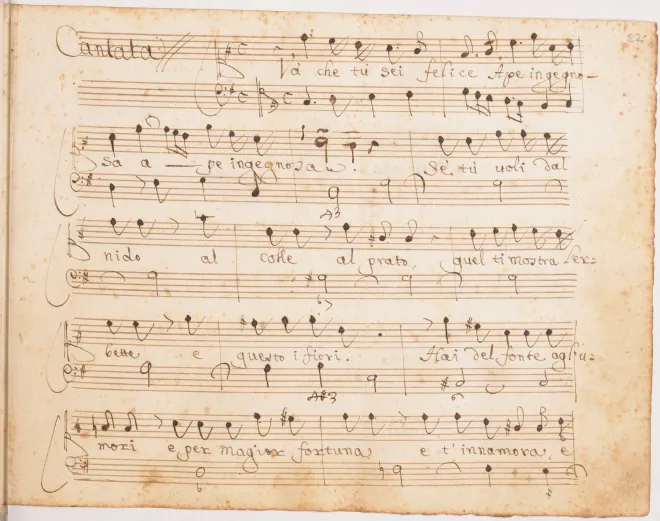 22
Cantata
Và che tú sei felice Ape ingegno-
sa a — pe ingegnosa. Se tú voli dal
43
nido al colle al prato, quel ti mostra l'er=
6
bette e questo i fiori. Hai del fonte
4#3 6
mori e per magior fortuna e t'innamora, e
6